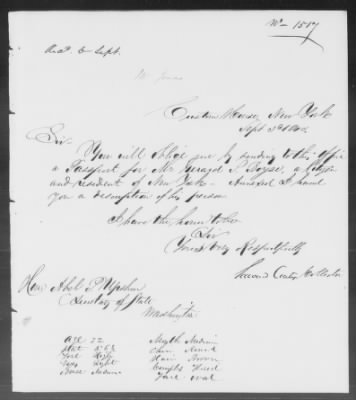 No - 1517
Recd 6 Sept.
Custom House, New York
Sept
Sir
You will oblige me by sending to this Office
a Passport for Mr Gerard P a Citizen
and resident of New York - Annexed I hand
you a description of his person
I have the honor to be
Sir
Yours Very Respectfully
Hon Abel P Upshur
Secretary of State
Washington
Age 22
Mouth Medium
Chin Round
Fore High
Hair Brown
Eyes Light
Nose
Face oval